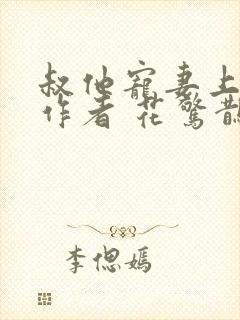 叔他寵妻上
作者 花驚
李偲嫣